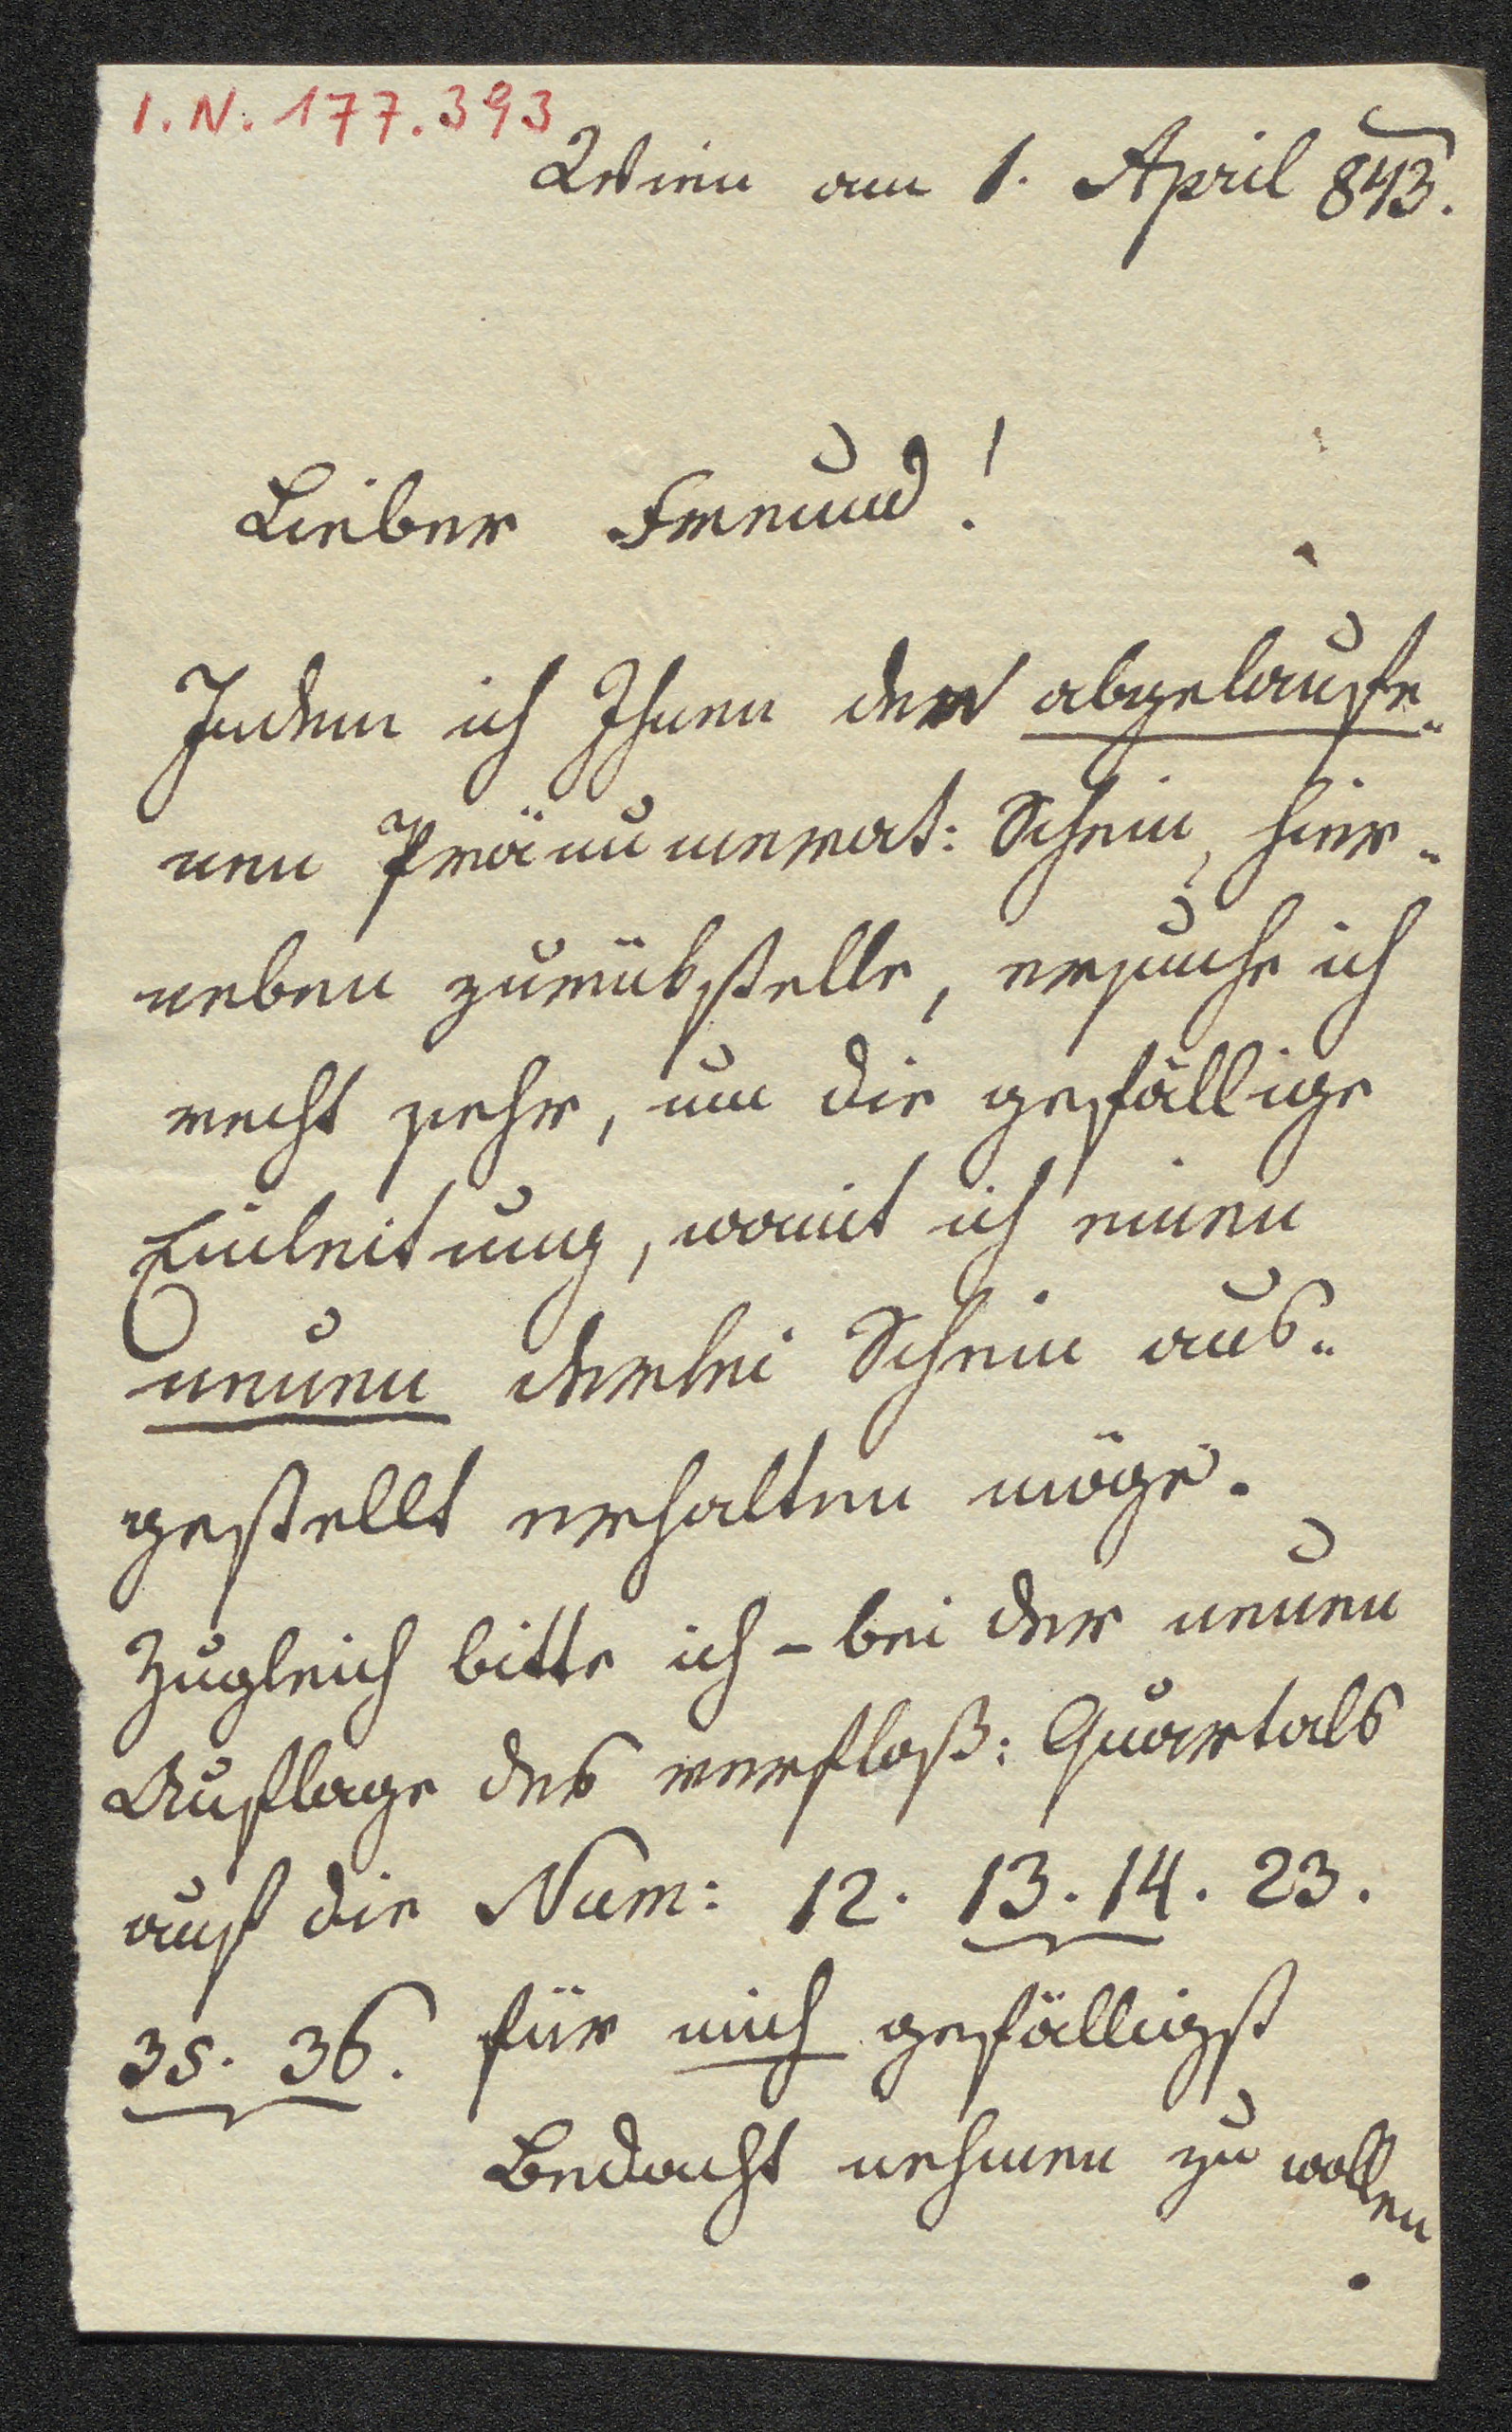 I.N. 177.393
Wien am 1. April 843.
Lieber Freund!
Indem ich Ihnen den abgelaufe„
nen Pränumerat: Schein, hier„
neben zurükstelle, ersuche ich
recht sehr, um die gefällige
Einleitung, womit ich einen
neuen derlei Schein aus„
gestellt erhalten möge.
Zugleich bitte ich – bei der neuen
Auflage des verfloß: Quartals
auf die Num: 12. 13. 14. 23.
35. 36. für mich gefälligst
Bedacht nehmen zu wollen.